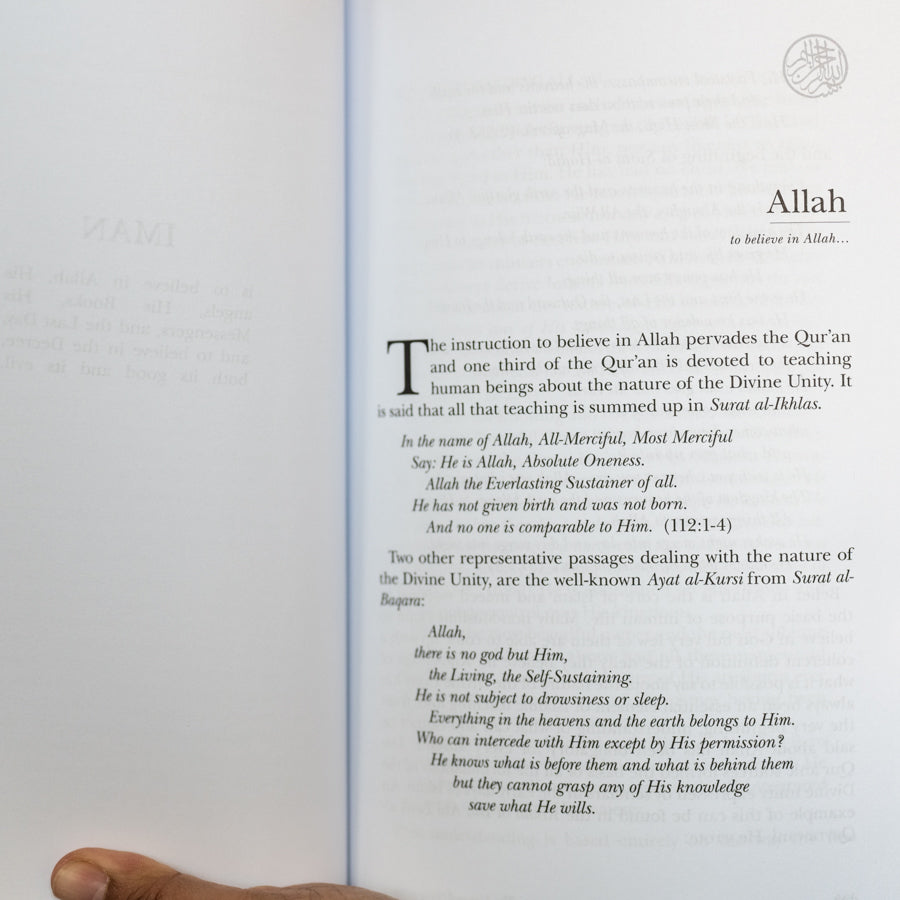 Allah
to believe in Allah…
The instruction to believe in Allah pervades the Qur'an
and one third of the Qur'an is devoted to teaching
human beings about the nature of the Divine Unity. It
is said that all that teaching is summed up in Surat al-Ikhlas.
In the name of Allah, All-Merciful, Most Merciful
Say: He is Allah, Absolute Oneness.
Allah the Everlasting Sustainer of all.
He has not given birth and was not born.
And no one is comparable to Him. (112:1-4)
Two other representative passages dealing with the nature of
the Divine Unity, are the well-known Ayat al-Kursi from Surat al-
Baqara:
Allah,
there is no god but Him,
the Living, the Self-Sustaining.
He is not subject to drowsiness or sleep.
Everything in the heavens and the earth belongs to Him.
Who can intercede with Him except by His permission?
He knows what is before them and what is behind them
but they cannot grasp any of His knowledge
save what He wills.